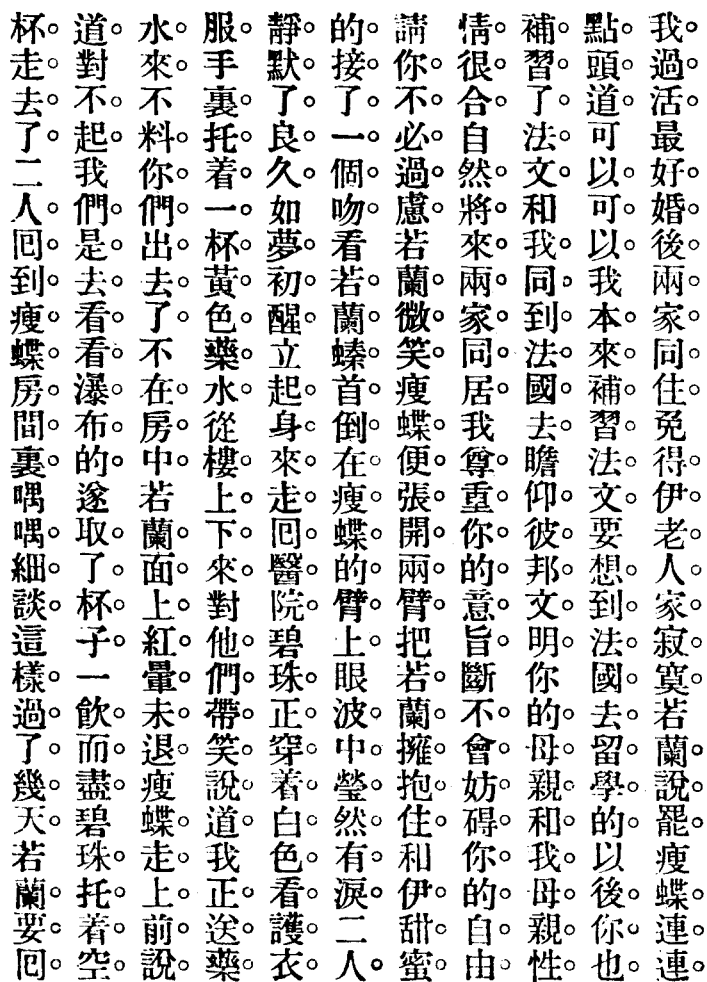 我過活最好婚後兩家同住免得伊老人家寂寞若蘭說罷瘦蝶連連
點頭道可以可以我本來補習法文要想到法國去留學的以後你也
補習了法文和我同到法國去瞻仰彼邦文明你的母親和我母親性
情很合自然將來兩家同居我尊重你的意旨斷不會妨碍你的自由
請你不必過慮若蘭微笑瘦蝶便張開兩臂把若蘭擁抱住和伊甜蜜
的接了一個吻看若蘭螓首倒在瘦蝶的臂上眼波中瑩然有淚二人
靜默了良久如夢初醒立起身來走囘醫院碧珠正穿着白色看護衣
服手裏托着一杯黃色藥水從樓上下來對他們帶笑說道我正送藥
水來不料你們出去了不在房中若蘭面上紅暈未退瘦蝶走上前說
道對不起我們是去看看瀑布的遂取了杯子一飲而盡碧珠托着空
杯走去了二人囘到瘦蝶房間裏喁喁細談這樣過了幾天若蘭要囘